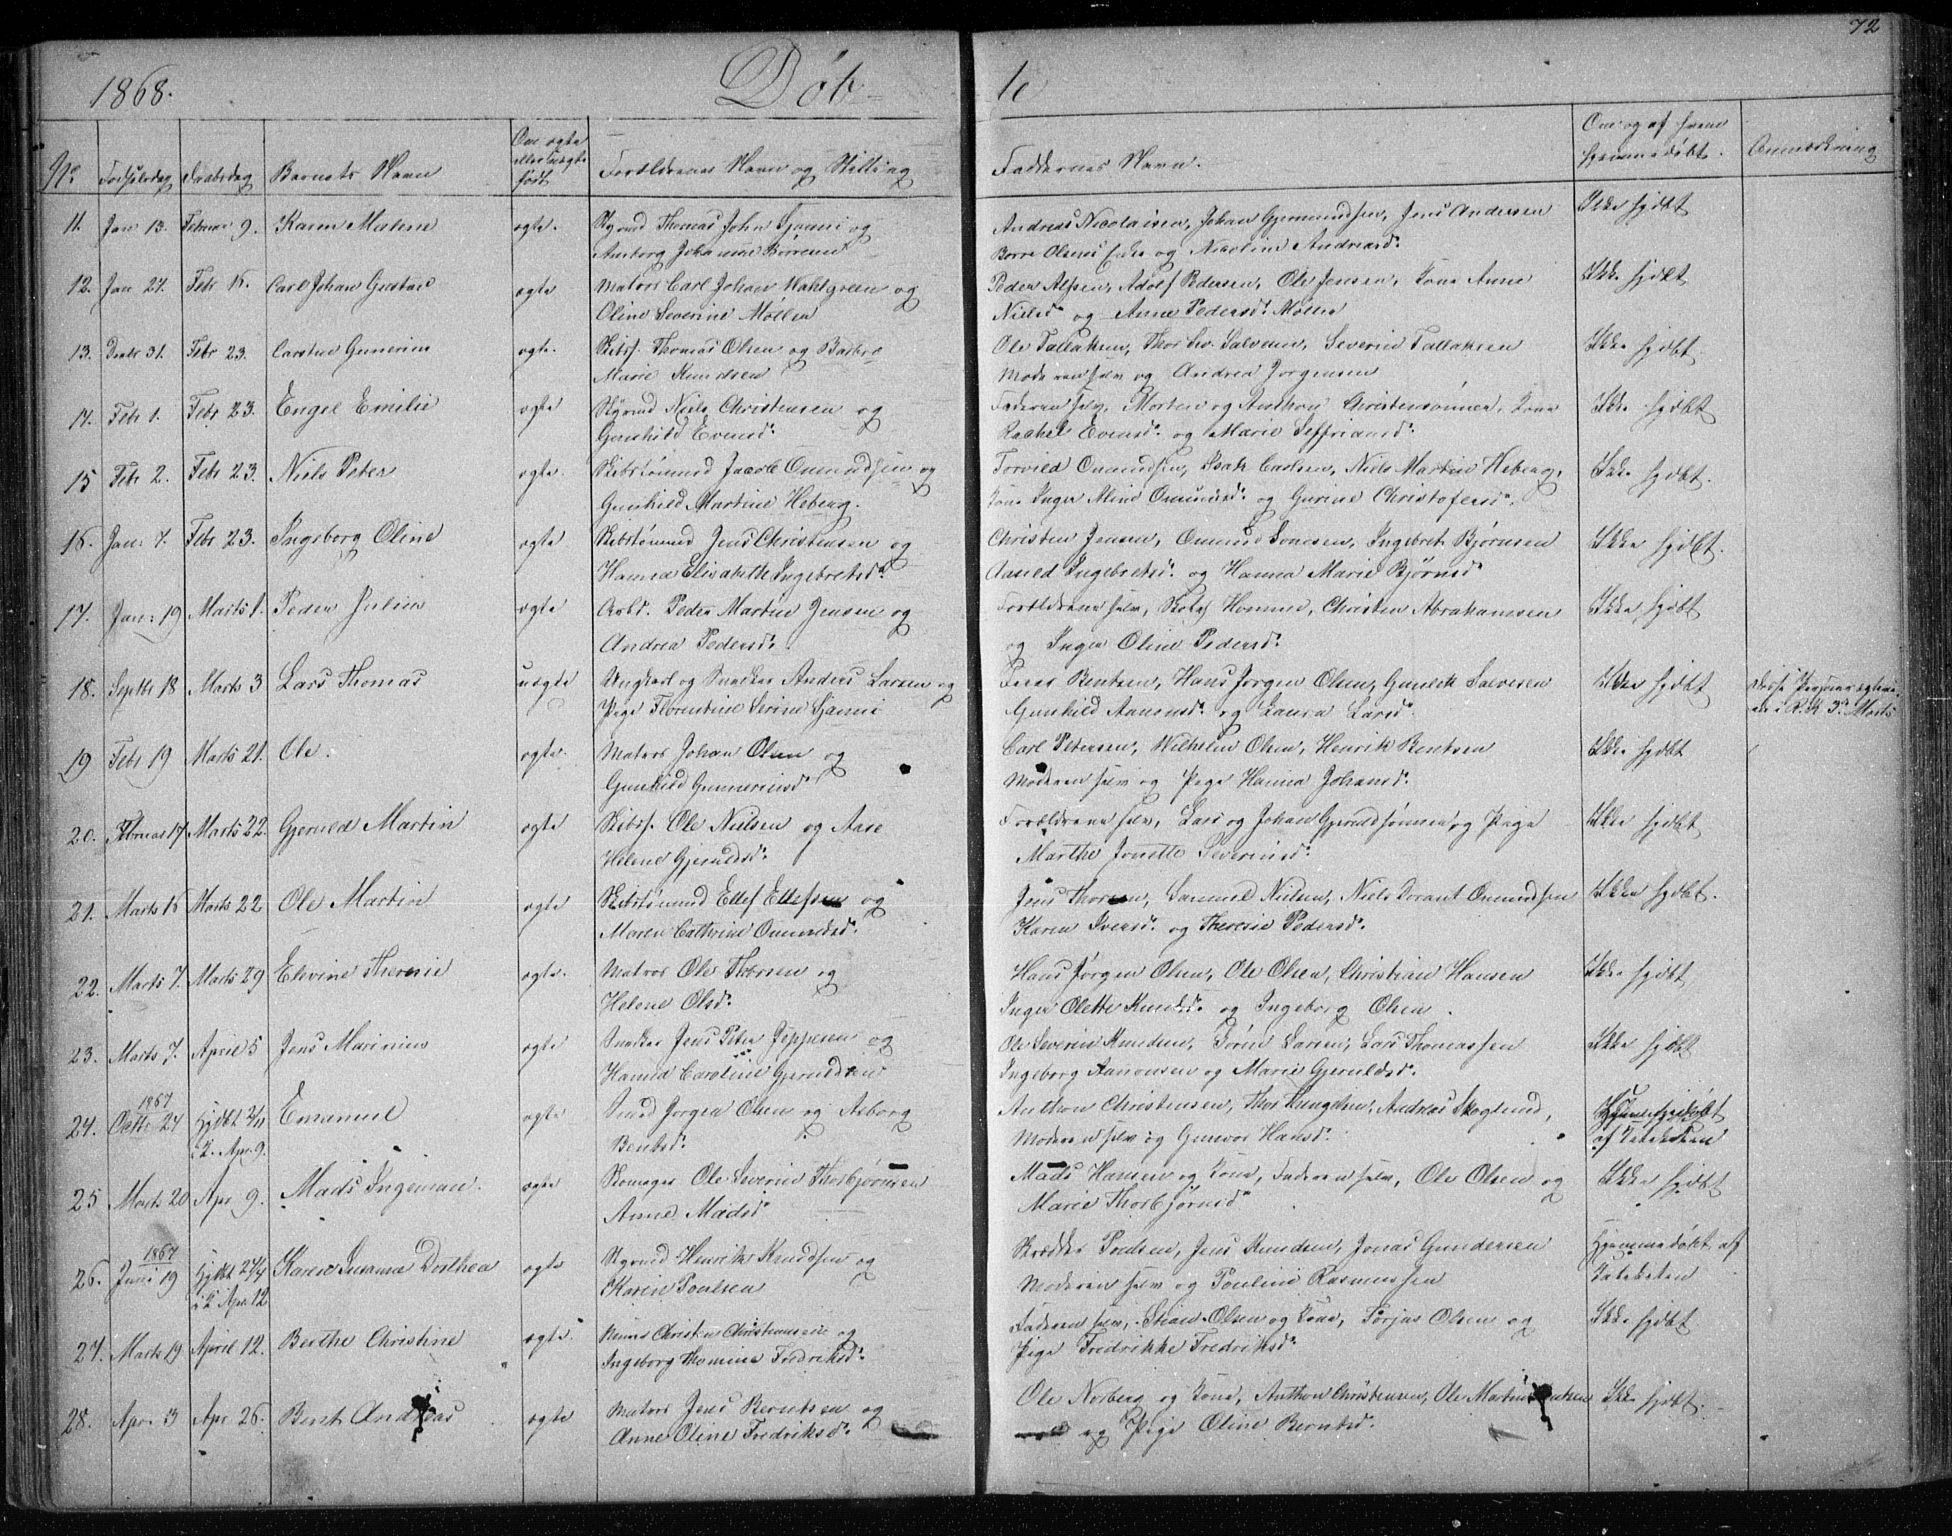 72
1868. Døb te
No Fødselsdag Daabsdag Barnets Navn Om ægte eller uægte født Forældrenes Navn og Stilling Faddernes Navn. Om og af hvem hjemmedøbt. Anmærkning
11. Jan 13. Februar 9. Karen Malene ægte. Styrmd Thomas John og Andreas Nicolaisen, Johan Gjermundsen, Jens Andersen Ikke hjdbt
Johanne og Nicoline Andreasd:
12. Jan 27. Febr 16. Carl Johan Gustav ægte Matros Carl Johan Wahlgreen og Peder Alfsen, Adolf Pedersen, Ole Jensen, Kone Anne Ikke hjdbt
Oline Severine Møller Nielsd: og Anne Pedersd: Møller
13. Decbr 31. Febr 23. Carsten Gunerius ægte. Skibsf. Thomas Olsen og Ole Tallaksen, Thor Sev. Salvesen, Severin Tallaksen Ikke hjdbt
Marie Knudsen Moderen selv og Andrea Jorgensen
14. Febr 1. Febr 23. Engel Emilie ægte Styrmd Niels Christensen og Faderen selv, Morten og Anthon Christensønner, Kone Ikke hjdbt
Gunhild Evensd: Rachel Evensd: og Marie
15 Febr 2. Febr 23. Niels Peter ægte. Skibstømmd Jacob Omundsen og Torvild Omundsen, Isak Carlsen, Niels Martin Heberg, Ikke hjdbt.
Gunhild Martine Heberg. Kone Inger Mine Omunds: og Gurine Christofersd:
16. Jan: 7. Febr 23. Ingeborg Oline ægte Skibstømmd Jens Christensen og Christen Jensen, Omund Ingebret Bjørnsen Ikke hjdbt.
Hanna Elisabeth Ingebretsd: Aasild Ingebretsd: og Hanna Marie Bjørnsd
17. Jan: 19 Marts 1. Peder Julius ægte Arbd. Peder Martin Jensen og Forældrene selv, Christen Abrahamsen Ikke hjdbt
Andrea Pedersd: og Inger Oline Pedersd:
18. Septbr 18 Marts 3 Lars Thomas uægte Ungkarl og Snedker Anders Larsen og Bentsen, Hans Jørgen Olsen, Gunleik Salvesen Ikke hjdbt disse Personer ægtevi-
Pige Florentine Serine Gunhild Aanonsd: og Laura Larsd: Marts
19 Febr 19 Marts 21. Ole. ægte. Matros Johan Olsen og Carl Petersen, Wilhelm Olsen, Henrik Bentsen Ikke hjdbt
Gunhild Gunneriusd Moderen selv og Pige Hanna Johansd:
20. Februar 17 Marts 22. Gjeruld Martin ægte Skibsf. Ole Nielsen og Aase Forældrene selv, Lars og Johan Gjeruldsønner og Pige Ikke hjdbt
Helene Gjeruldsd: Marthe Jonette Severinsd:
21. Marts 16 Marts 22 Ole Martin ægte Skibstømmd Ellef Ellefsen og Jens Thorsen, Samuel Nielsen, Niels Omundsen Ikke hjdbt.
Maren Cathrine Omundsd: Karen Iversd: og Theresie Pedersd:
22. Marts 7. Marts 29 Elevine Theresie ægte. Matros Ole Thorsen og Hans Jørgen Olsen, Ole Olsen, Christian Hansen Ikke hjdbt
Helene Olsd: Inger Olette Knudsd: og Ingeborg Olsen.
23. Marts 7. April 5 Jens Marinius ægte Snedker Jens Peter Jeppesen og Ole Severin Knudsen, Larsen, Lars Thomassen Ikke hjdbt
Hanna Caroline Gjeruldsen Ingeborg Aanonsen og Marie Gjeruldsd:
24. 1867 Octbr 24 Hjdbt 3/11 Emanuel ægte Smed Jørgen Olsen og Aaborg Anthon Christensen, Andreas Skoglund, Hjemmedøbt
i K. Apr. 9. Bentsd: Moderen selv og Gunvor Hansd: af Kateketen
25 Marts 20 Apr 9. Mads Ingeman. ægte Skomager Ole Severin Thorbjørnsen Mads Hansen og Kone, Faderen selv, Ole Olsen og Ikke hjdbt
Anne Madsd Marie Thorbjørnsd
26. 1867 Juni 19 Hjdbt 27/7 Karen Susanne Dorthea ægte Styrmd Henrik Knudsen og Skrædder Poulsen, Jens Knudsen, Jonas Gundersen Hjemmedøbt af
i K. Apr 12 Karen Poulsen Moderen selv og Pouline Rasmussen Kateketen
27. Marts 19 April 12. Berthe Christine ægte. Christen Christiansen og Faderen selv, Stian Olsen og Kone, Torjus Olsen og Ikke hjdbt
Ingeborg Thomine Fredriksd: Pige Fredrikke Fredriksd:
28. Apr. 3 Apr 26. Bent Andreas ægte Matros Jens Berntsen og Ole Norberg og Kone, Anthon Christensen, Ole Martin Ikke hjdbt.
Anne Oline Fredriksd: og Pige Oline Berntsd: